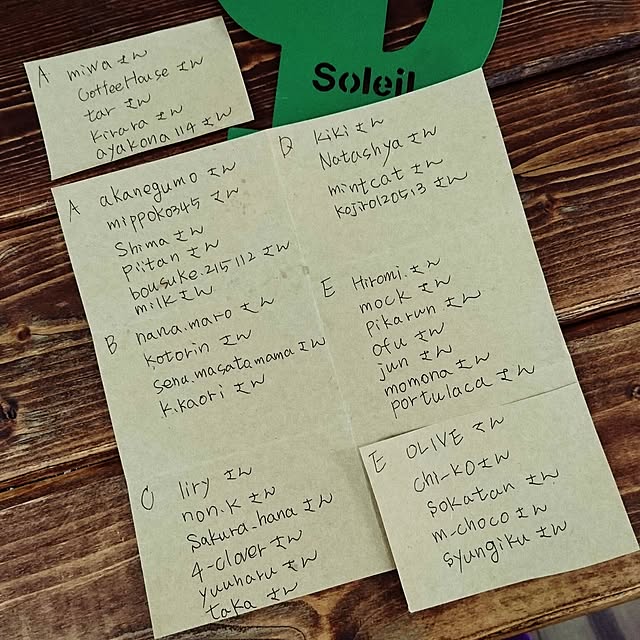 Soleil
A miwaさん
CoffeeHouseさん
tarさん
kiraraさん
ayakona114さん
A akanegumoさん
mippoko345さん
Shimaさん
piitanさん
bousuke.215112さん
milkさん
B nana.maroさん
kotorinさん
senu.masatamamaさん
k.kaoriさん
C liryさん
non.kさん
Sakura.hanaさん
4-cloverさん
yuuharuさん
takaさん
D kikiさん
Natashyaさん
mintcatさん
kojiro120513さん
E Hiromi.さん
mockさん
Pikarunさん
ofuさん
junさん
momonaさん
portulacaさん
E OLIVEさん
chi-koさん
sokatanさん
m-chocoさん
syungikuさん